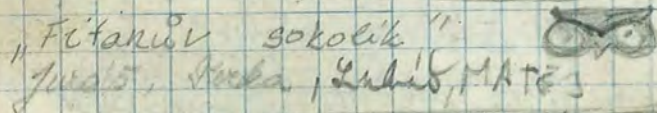 „Fifanův sokolík"
Juráš, Jirka, Lubáš, MATĚJ